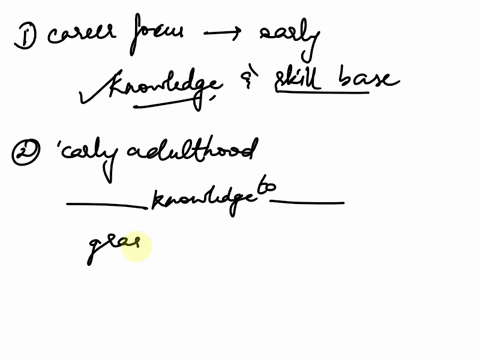 1) career focus → early
✓ knowledge & skill base
2) early adulthood
____ knowledge to ____
gear